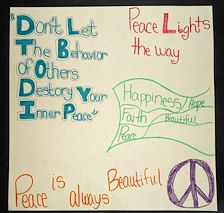 "Don't Let
The Behavior
of Others
Destory Your
Inner Peace"
Peace Lights
the way
Happiness/Hope
Faith Beautiful
Peace
Peace is always Beautiful